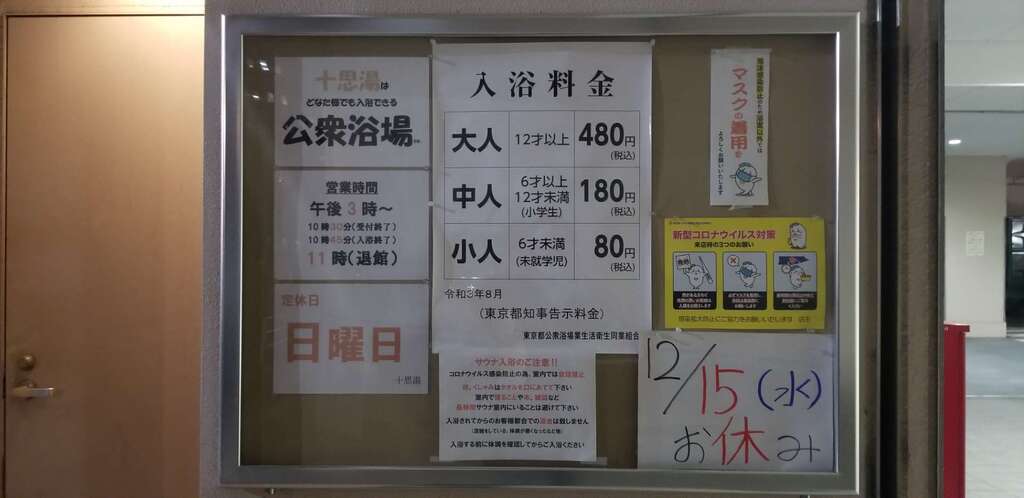 十思湯は
どなた様でも入浴できる
公衆浴場です。
営業時間
午後3時〜
10時30分(受付終了)
10時45分(入浴終了)
11時(退館)
定休日
日曜日
十思湯
入浴料金
大人 12才以上 480円(税込)
中人 6才以上12才未満(小学生) 180円(税込)
小人 6才未満(未就学児) 80円(税込)
令和3年8月
(東京都知事告示料金)
東京都公衆浴場業生活衛生同業組合
サウナ入浴のご注意!!
コロナウイルス感染防止の為、室内では会話禁止
咳、くしゃみはタオルを口にあてて下さい
室内で寝ることや本、雑誌など
長時間サウナ室内にいることは避けて下さい
入浴されてからのお客様都合での返金は致しません
入浴する前に体調を確認してからご入浴ください
飛沫感染防止のため浴室以外では
マスクの着用を
よろしくお願いいたします
新型コロナウイルス対策
来店時の3つのお願い
感染拡大防止にご協力をお願いいたします 店主
12/15(水)
お休み